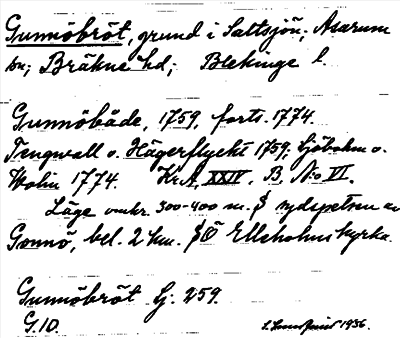 Gunnöbröt, grund i Saltsjön; Asarum
sn; Bräkne hd; Blekinge l.
Gunnöbåde, 1759, forts. 1774.
Tengwall o. Hägerflyckt 1759; Sjöbohm o.
Wohn 1774. Kr.A. XXIV. B. No VI.
Läge omkr. 300-400 m. S sydspetsen av
Gonnö, bel. 2 km. SÖ Elleholms kyrka.
Gunnöbröt Gj. 259.
G.10. 1936.